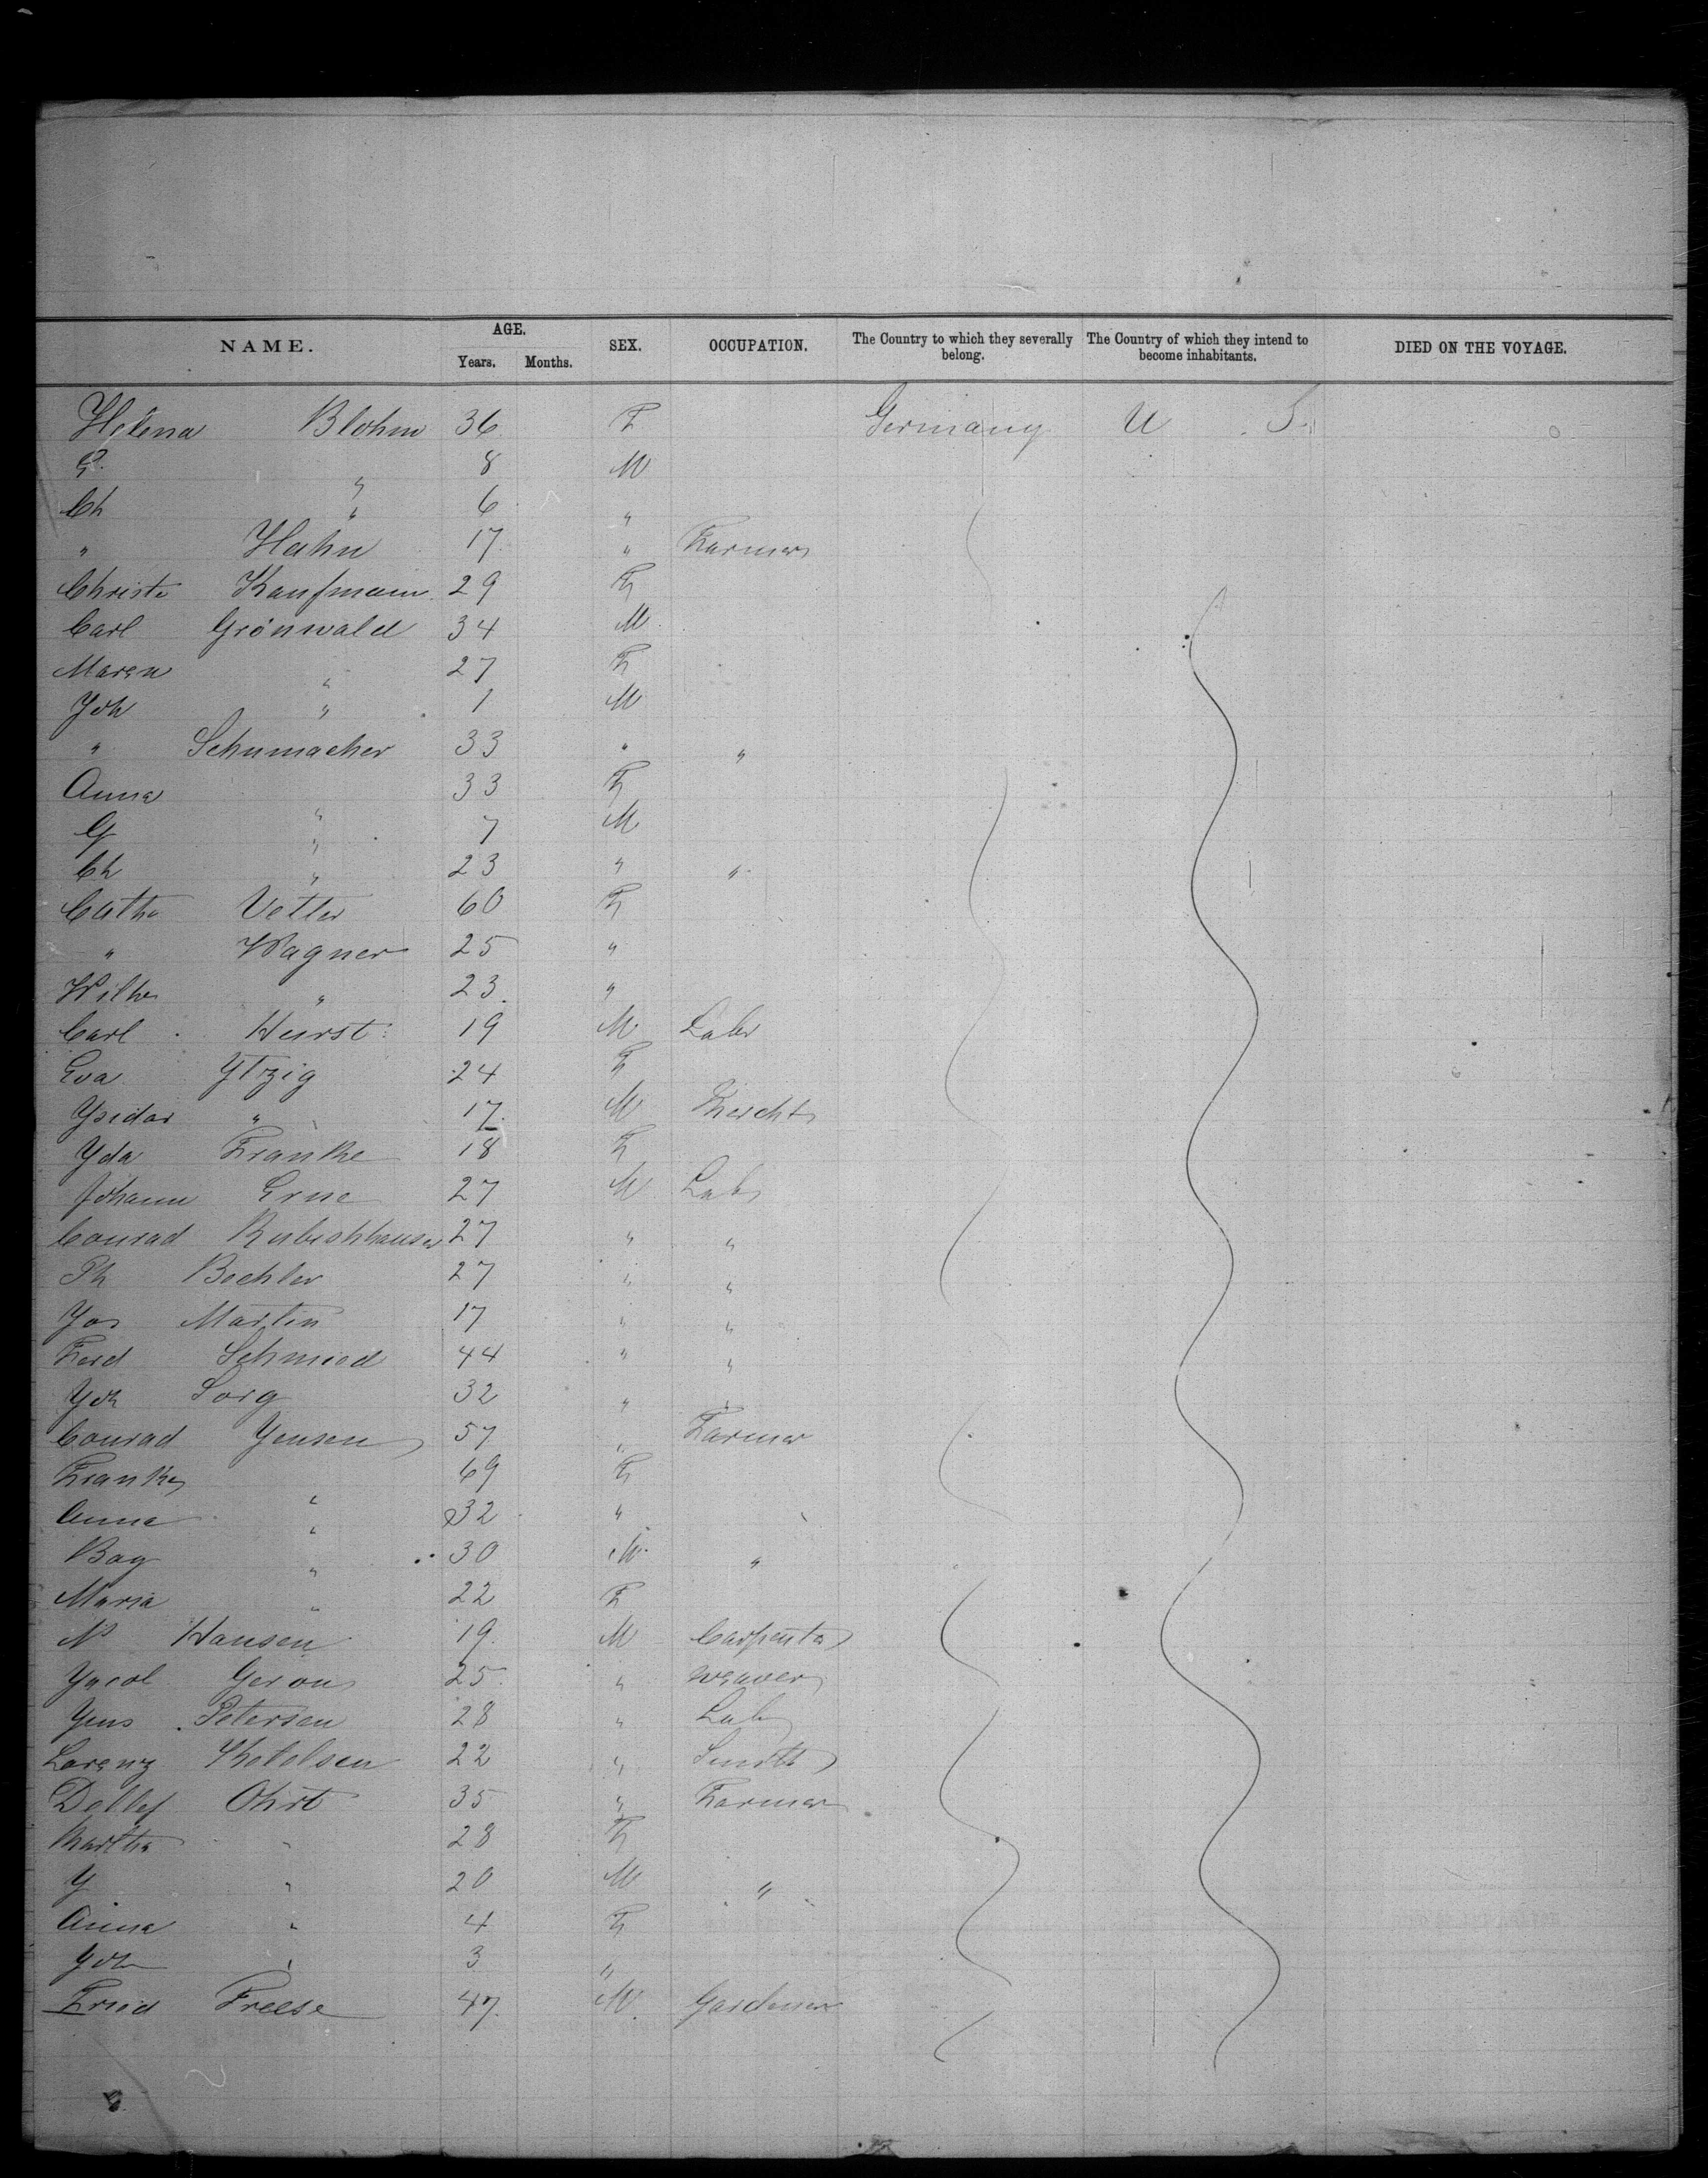 NAME. AGE. SEX. OCCUPATION. The Country to which they severally belong. The Country of which they intend to become inhabitants. DIED ON THE VOYAGE.
Years. Months.
Helena Blohm 36 F Germany U. S.
8 M
Ch " 6 "
" Hahn 17 " Farmer
Christe Kaufmann 29 F
Carl Grönwald 34 M
Maren " 27 F
Joh " 1 M
" Schumacher 33 " "
Anna " 33 F
G " 7 M
Ch " 23 " "
Cath Vetter 60 F
" Wagner 25 "
Wilh " 23 "
Carl Hurst 19 M Labr
Eva Ytzig 24 F
Ysidor " 17 M
Yda Franke 18 F
Johann Erne 27 M Lab
Conrad 27 " "
Ph Bechler 27 " "
Jos Martin 17 " "
Ferd Schmied 44 " "
Joh Sorg 32 " "
Conrad Yensen 57 " Farmer
69 F
Anna " 32 "
Bay " 30 M "
Maria " 22 F
N Hansen 19 M Carpenter
Yacob 25 " Weaver
Yens Petersen 28 " Lab
Lorenz 22 " Smith
Detlef Ohrt 35 " Farmer
Martha " 28 F
Y " 20 M "
Anna " 4 F
Joh " 3 "
Fried Freese 47 M Gardener